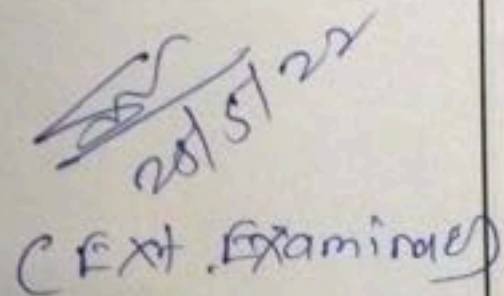 28/5/22
(Ext. Examiner)